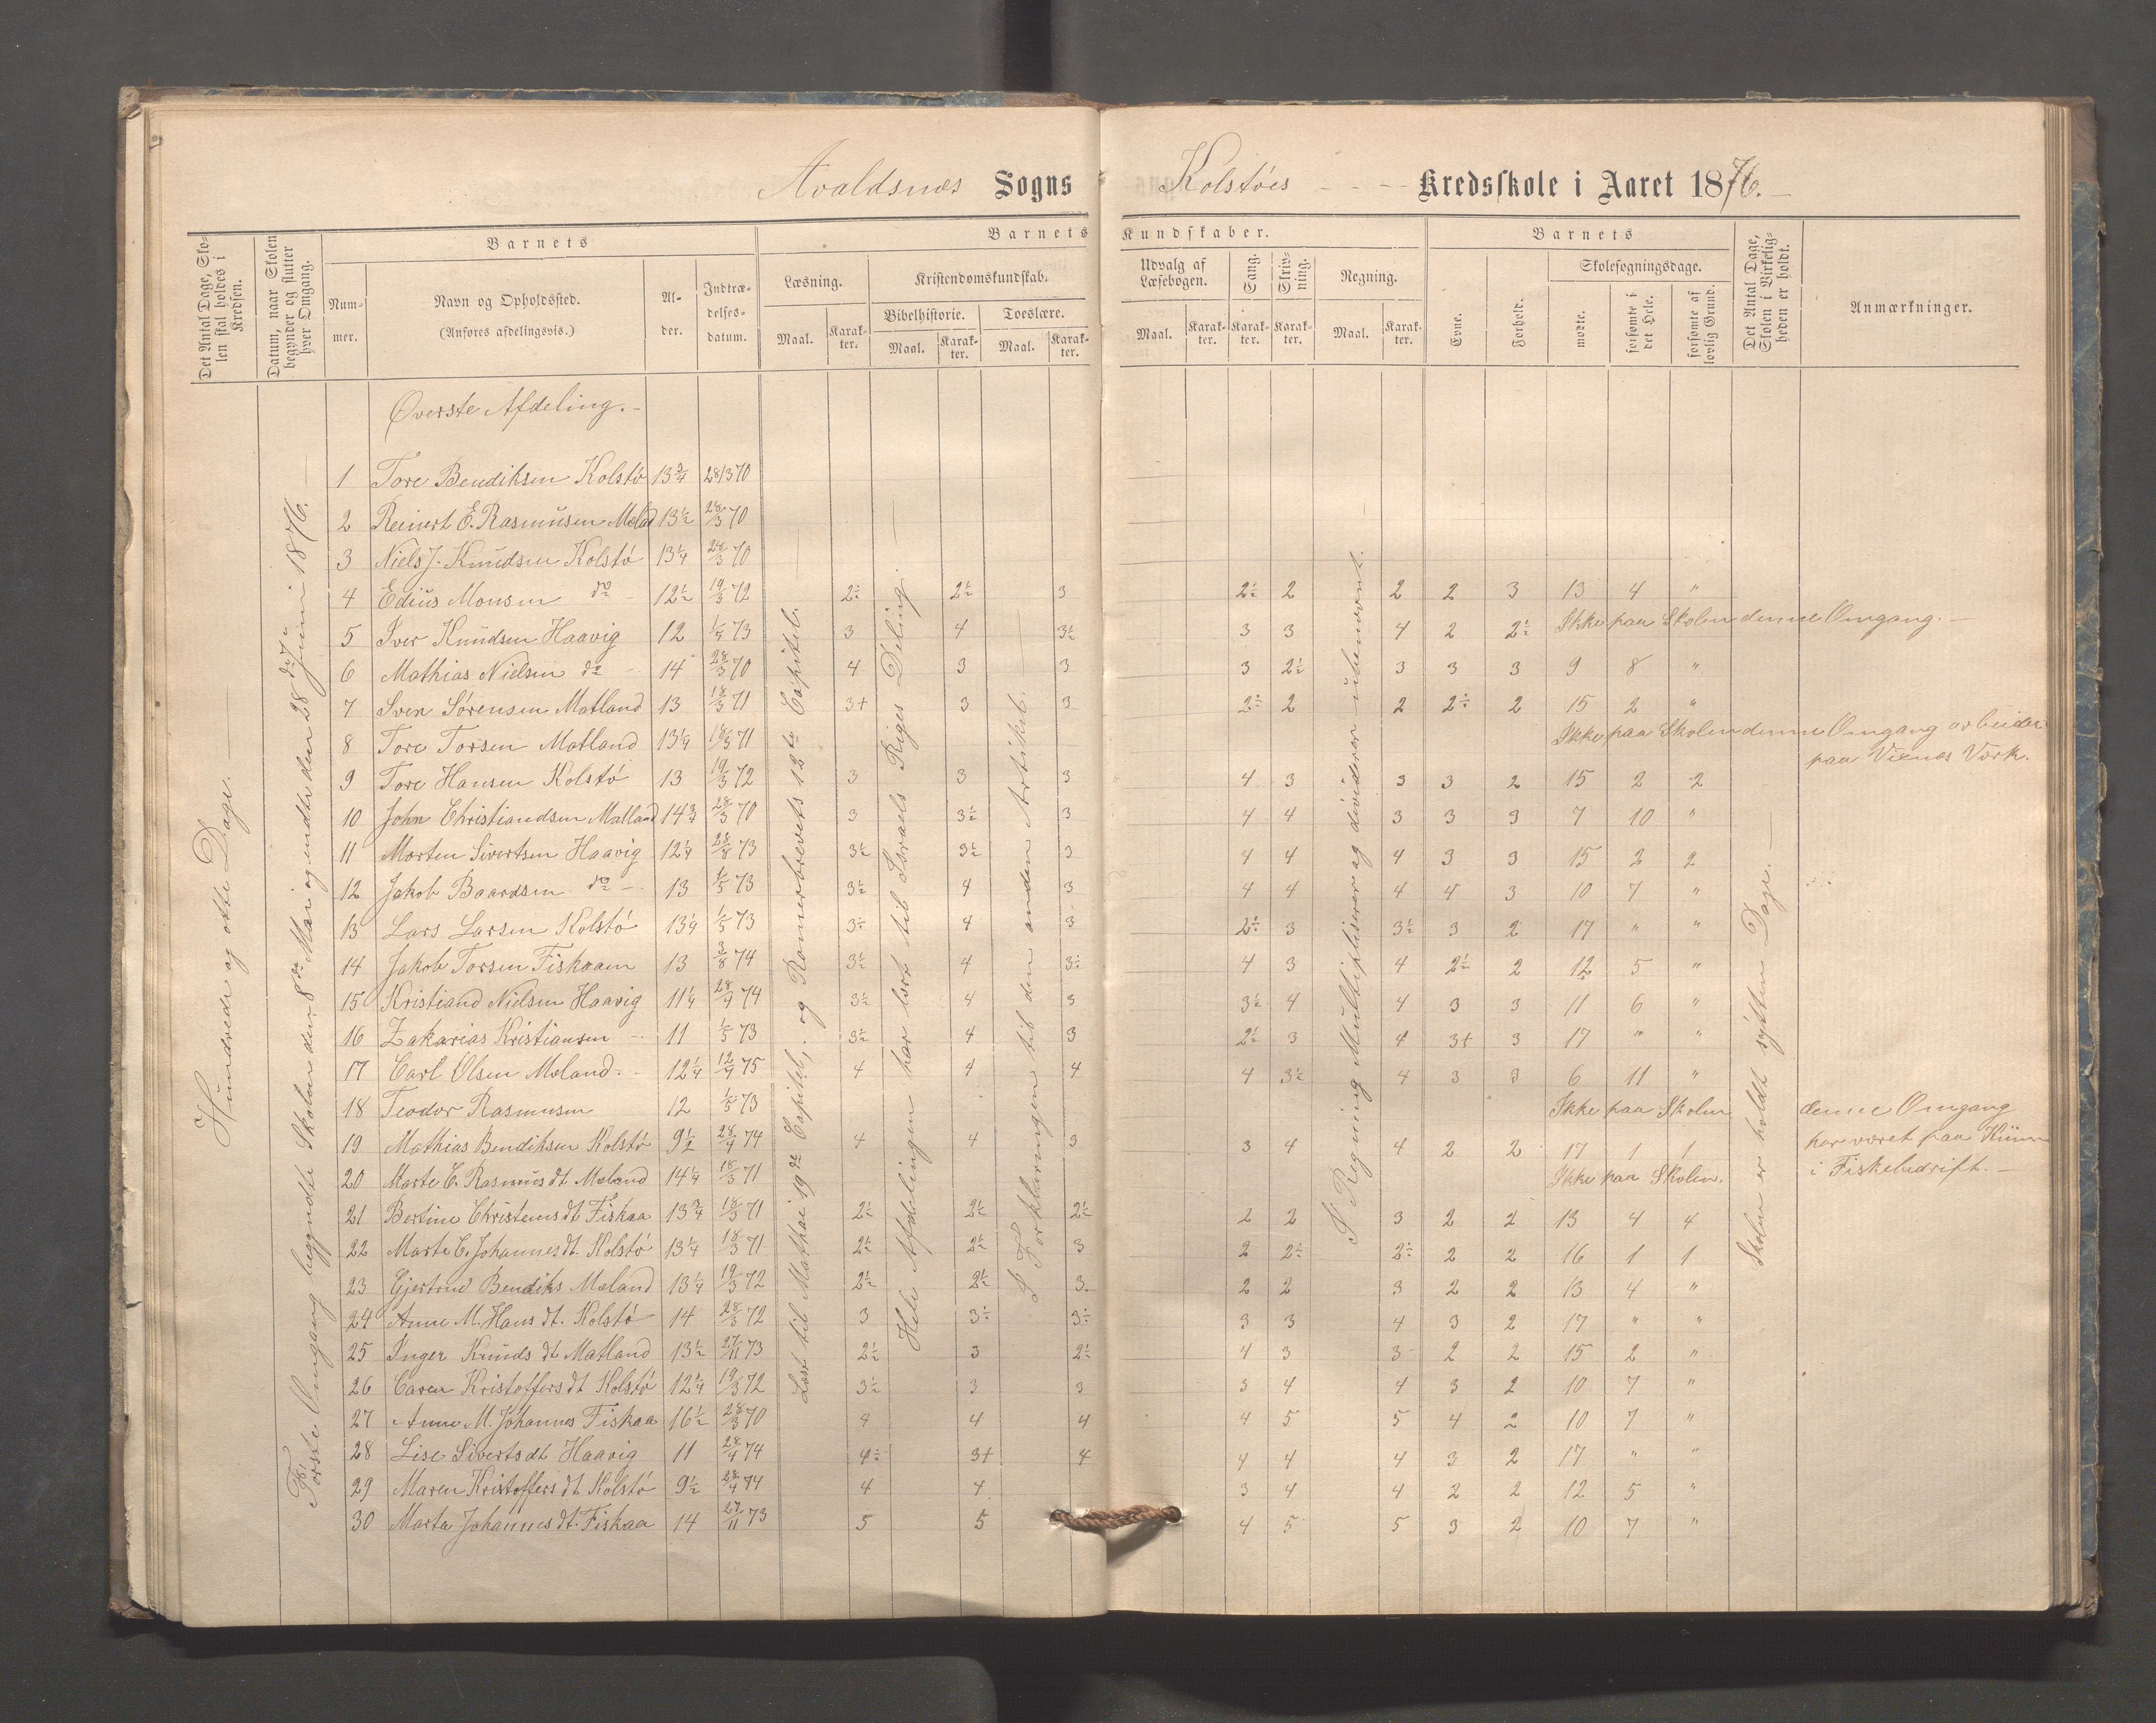 Avaldsnes Sogns Kolstøes Kredsskole i Aaret 1876.
Det Antal Dage, Skolen skal holdes i Kredsen.
Datum, naar Skolen begynder og slutter hver Omgang.
Barnets
Nummer.
Navn og Opholdssted.
(Anføres afdelingsvis.)
Alder.
Indtrædelsesdatum.
Barnets Kundskaber.
Læsning.
Maal. Karakter.
Kristendomskundskab.
Bibelhistorie.
Maal. Karakter.
Troeslære.
Maal. Karakter.
Udvalg af Læsebogen.
Maal. Karakter.
Sang.
Karakter.
Skrivning.
Karakter.
Regning.
Maal. Karakter.
Barnets
Evne.
Forhold.
Skolesøgningsdage.
mødte.
forsømte i det Hele.
forsømte af lovlig Grund.
Det Antal Dage, Skolen i Virkeligheden er holdt.
Anmærkninger.
Hundrede og otte Dage.
Første Omgang begyndte Skolen den 8de Mai og endte den 28de Juni 1876.
Læst til Mathæi 19de Capitel, og Romerbrevets 12te Capitel.
Hele Afdelingen har lært til Israels Riges Deling.
I Forklaringen til den anden Artikel.
I Regning Multipliserer og dividerer ubenævnt.
Skolen er holdt sytten Dage.
Øverste Afdeling.
1 Tore Bendiksen Kolstø 13 3/4 28/3 70
2 Reinert E. Rasmusen Mæland 13 1/2 28/3 70
3 Niels J. Knudsen Kolstø 13 1/4 28/3 70
4 Edius Monsen do 12 1/2 19/3 72 2÷ 2 1/2 3 2 1/2 2 2 2 3 13 4 "
5 Iver Knudsen Haavig 12 1/5 73 3 4 3 1/2 3 3 4 2 2 1/2 Ikke paa Skolen denne Omgang.
6 Mathias Nielsen do 14 28/3 70 4 3 3 3 2 1/2 3 3 3 9 8 "
7 Sven Sørensen Matland 13 18/3 71 3+ 3 3 2÷ 2 2 2÷ 2 15 2 "
8 Tore Torsen Matland 13 1/4 18/3 71 Ikke paa Skolen denne Omgang arbeider paa Viknes Værk.
9 Tore Hansen Kolstø 13 19/3 72 3 3 3 4 3 3 3 2 15 2 2
10 John Christiandsen Matland 14 3/4 28/3 70 3 3 1/2 3 4 4 3 3 3 7 10 "
11 Morten Sivertsen Haavig 12 1/4 28/8 73 3 1/2 3 1/2 3 4 4 4 3 3 15 2 2
12 Jakob Baardsen do 13 1/5 73 3 1/2 4 3 4 4 4 4 3 10 7 "
13 Lars Larsen Kolstø 13 1/4 1/5 73 3÷ 4 3 2÷ 3 3 1/2 3 2 17 " "
14 Jakob Torsen Fiskaaen 13 3/8 74 3 1/2 4 3÷ 4 3 4 2 1/2 2 12 5 "
15 Kristiand Nielsen Haavig 11 1/4 28/4 74 3 1/2 4 3 3 1/2 4 4 3 3 11 6 "
16 Zakarias Kristiansen 11 1/5 73 3 1/2 4 3 2 1/2 3 4 3+ 3 17 " "
17 Carl Olsen Mæland 12 1/4 12/4 75 4 4 4 4 3 1/2 4 3 3 6 11 "
18 Teodor Rasmusen 12 1/5 73 Ikke paa Skolen denne Omgang
19 Mathias Bendiksen Kolstø 9 1/2 28/4 74 4 4 3 3 4 4 2 2 17 1 1 har været paa
20 Marte E. Rasmus dt Mæland 14 1/4 18/3 71 Ikke paa Skolen. i Fiskebedrift.
21 Bertine Christens dt Fiskaa 13 3/4 18/3 71 2 1/2 2 1/2 2 1/2 2 2 3 2 2 13 4 4
22 Marte C. Johannes dt. Kolstø 13 1/4 18/3 71 2 1/2 2 1/2 3 2 2÷ 2÷ 2 2 16 1 1
23 Gjertrud Bendiks Mæland 13 1/4 19/3 72 2 1/2 2 1/2 3 2 2 3 2 2 13 4 "
24 Anne M. Hans dt. Kolstø 14 28/3 72 3 3÷ 3÷ 3 3 4 3 2 17 " "
25 Inger Knuds dt Matland 13 1/2 27/11 73 2 1/2 3 2 1/2 4 3 3 2 2 15 2 "
26 Caren Kristoffers dt Kolstø 12 1/4 19/3 72 3 1/2 3 3 3 4 4 3 2 10 7 "
27 Anne M. Johannes Fiskaa 16 1/2 28/3 70 4 4 4 4 5 5 4 2 10 7 "
28 Lise Siverts dt Haavig 11 28/4 74 4÷ 3+ 4 4 4 4 3 2 17 " "
29 Maren Kristoffers dt Kolstø 9 1/2 28/4 74 4 4 3 4 4 2 2 12 5 "
30 Marta Johannes dt. Fiskaa 14 27/11 73 5 5 4 5 5 3 2 10 7 "